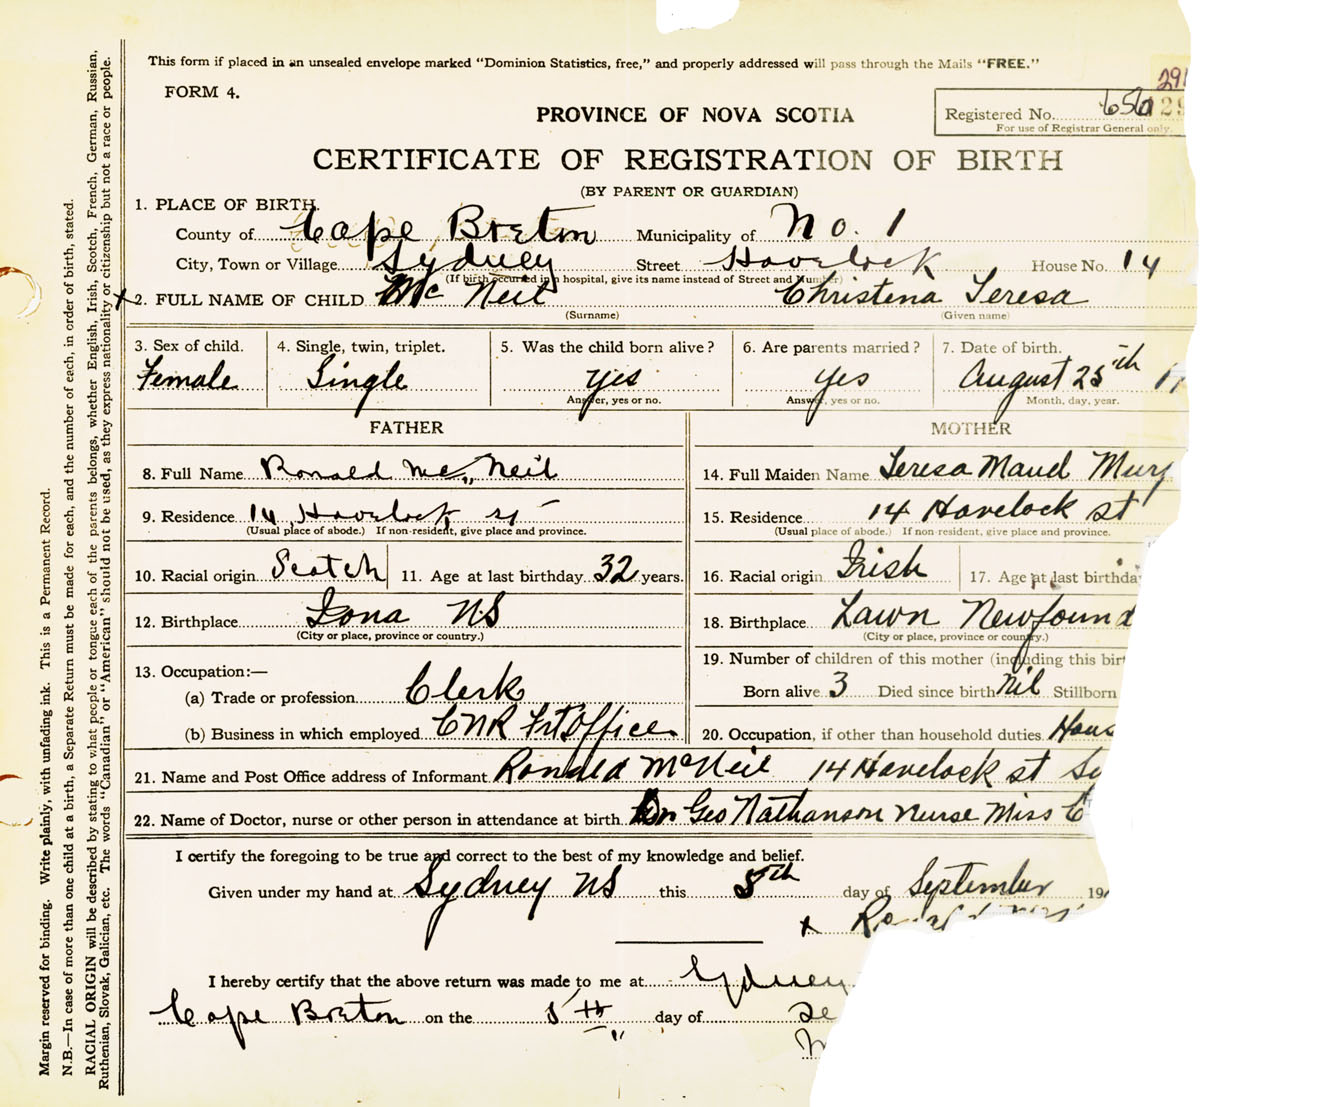 This form if placed in an unsealed envelope marked "Dominion Statistics, free," and properly addressed will pass through the Mails "FREE."
FORM 4.
PROVINCE OF NOVA SCOTIA
Registered No.
For use of Registrar General only.
CERTIFICATE OF REGISTRATION OF BIRTH
(BY PARENT OR GUARDIAN)
1. PLACE OF BIRTH.
County of Cape Breton Municipality of No. 1
City, Town or Village Sydney Street Havelock House No. 14
(If birth occurred in a hospital, give its name instead of Street and Number)
x 2. FULL NAME OF CHILD Mc Neil Christena Teresa
(Surname) (Given name)
3. Sex of child. 4. Single, twin, triplet. 5. Was the child born alive? 6. Are parents married? 7. Date of birth.
Female Single yes yes August 25th
Answer, yes or no. Answer, yes or no. Month, day, year.
FATHER MOTHER
8. Full Name Ronald Mc Neil 14. Full Maiden Name Teresa Maud
9. Residence 14 Havelock st 15. Residence 14 Havelock st
(Usual place of abode.) If non-resident, give place and province. (Usual place of abode.) If non-resident, give place and province.
10. Racial origin Scotch 11. Age at last birthday 32 years. 16. Racial origin Irish 17. Age at last birthda
12. Birthplace Iona NS 18. Birthplace Lawn Newfound
(City or place, province or country.) (City or place, province or country.)
13. Occupation:— 19. Number of children of this mother (including this birt
(a) Trade or profession Clerk Born alive 3 Died since birth Nil Stillborn
(b) Business in which employed CNR Frt Office 20. Occupation, if other than household duties. Hous
21. Name and Post Office address of Informant Ronald McNeil 14 Havelock st Sy
22. Name of Doctor, nurse or other person in attendance at birth Dr Geo Nathanson Nurse Miss C
I certify the foregoing to be true and correct to the best of my knowledge and belief.
Given under my hand at Sydney NS this 5th day of September 19
x
I hereby certify that the above return was made to me at Sydney
Cape Breton on the 5th day of Se
Margin reserved for binding. Write plainly, with unfading ink. This is a Permanent Record.
N.B.—In case of more than one child at a birth, a Separate Return must be made for each, and the number of each, in order of birth, stated.
RACIAL ORIGIN will be described by stating to what people or tongue each of the parents belongs, whether English, Irish, Scotch, French, German, Russian,
Ruthenian, Slovak, Galician, etc. The words "Canadian" or "American" should not be used, as they express nationality or citizenship but not a race or people.